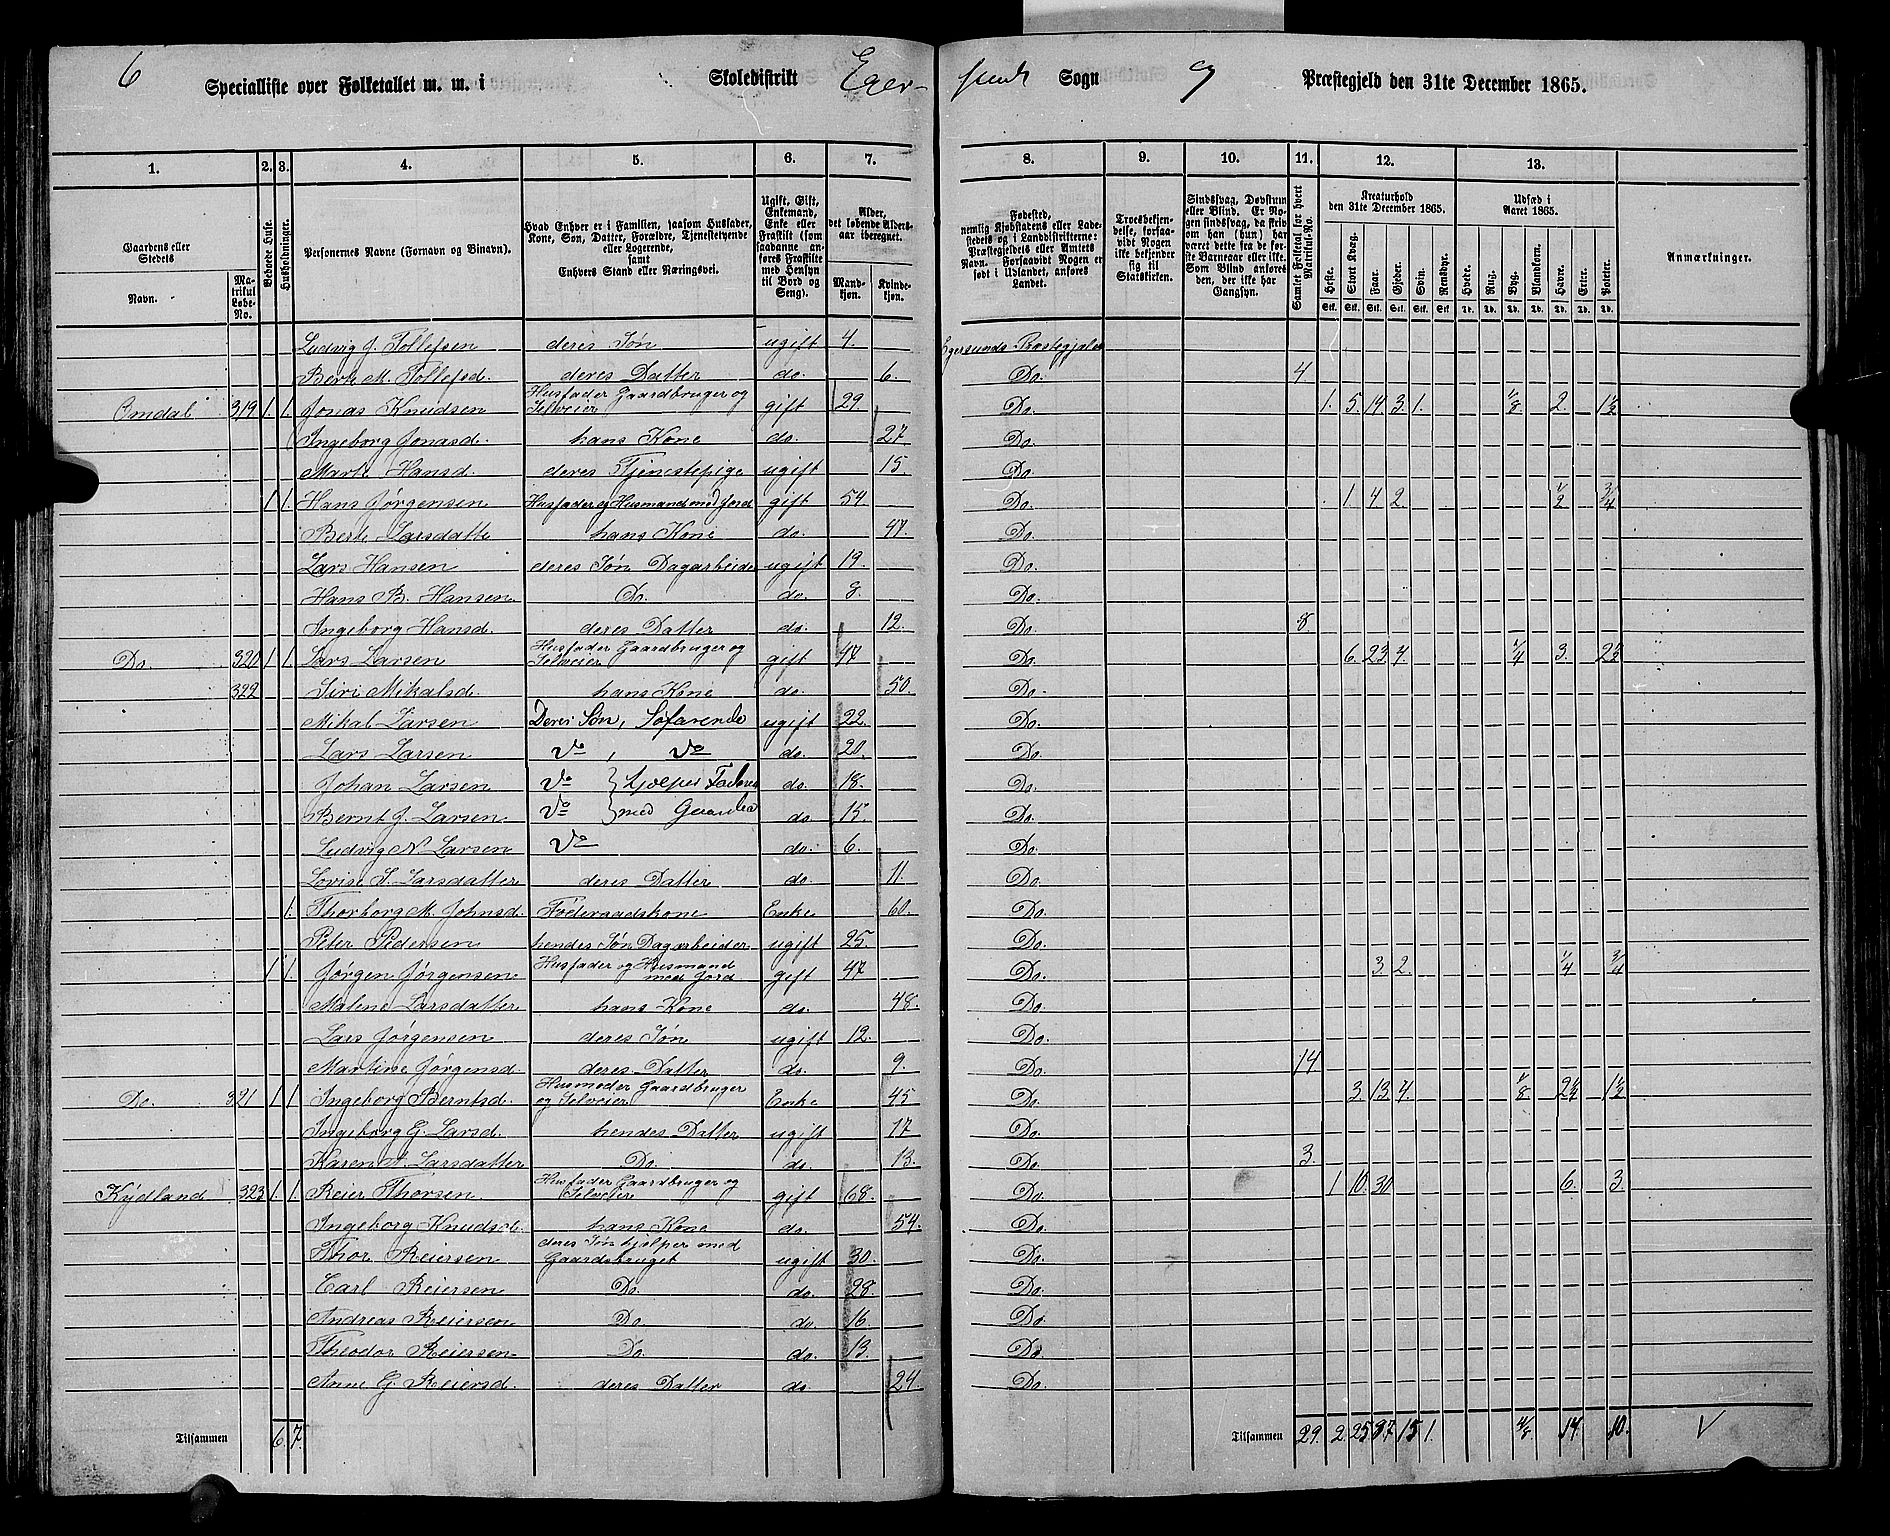 6 Specialliste over Folketallet m. m. i Skoledistrikt Eger- sunds Sogn og Præstegjeld den 31te December 1865.
1. 2. 3. 4. 5. 6. 7. 8. 9. 10. 11. 12. 13.
Gaardens eller Stedets Navn. Matrikul Løbe-No. Beboede Huse. Husholdninger. Personernes Navne (Fornavn og Binavn). Hvad Enhver er i Familien, saasom Husfader, Kone, Søn, Datter, Forældre, Tjenestetyende eller Logerende, samt Enhvers Stand eller Næringsvei. Ugift, Gift, Enkemand, Enke eller Fraskilt (som saadanne anføres Fraskilte med Hensyn til Bord og Seng). Alder, det løbende Aldersaar iberegnet. Mandkjøn. Kvindekjøn. Fødested, nemlig Kjøbstadens eller Ladestedets og i Landdistrikterne: Præstegjeldets eller Amtets Navn. Forsaavidt Nogen er født i Udlandet, anføres Landet. Troesbekjendelse, forsaavidt Nogen ikke bekjender sig til Statskirken. Sindssvag, Døvstum eller Blind. Er Nogen sindssvag, da skrives om han (hun) har været dette fra de første Barneaar eller ikke. Som Blind anføres den, der ikke har Gangsyn. Samlet Folketal for hvert Matrikul-No. Kreaturhold den 31te December 1865. Heste. Stort Kvæg. Faar. Gjeder. Svin. Rensdyr. Udsæd i Aaret 1865. Hvede. Rug. Byg. Blandkorn. Havre. Erter. Poteter. Anmærkninger.
Stk. Stk. Stk. Stk. Stk. Stk. Td. Td. Td. Td. Td. Td. Td.
Ludvig J. Tollefsen deres Søn ugift 4. Egersunds Præstegjeld
Berte M. Tollefsd. deres Datter do. 6. Do. 4
Omdal 319 1. 1. Jonas Knudsen Husfader Gaardbruger og Selveier gift 29. Do. 1. 5. 14. 3. 1. 1/8 2. 1 1/2
Ingeborg Jonasd. hans Kone do. 27 Do.
Marte Hansd. deres Tjenestepige ugift 15. Do.
1 1. Hans Jørgensen Husfader og Husmand med Jord gift 54. Do. 1. 4. 2. 1/2 3/4
Berte Larsdatte hans Kone do. 47. Do.
Lars Hansen deres Søn Dagarbeide ugift 19. Do.
Hans B. Hansen Do. do. 8. Do.
Ingeborg Hansd. deres Datter do. 12. Do. 8.
Do. 320 1 1. Lars Larsen Husfader Gaardbruger og Selveier gift 47 Do. 6. 23. 4. 1/4 3. 2 1/2
322 Siri Mikalsd. hans Kone do. 50. Do.
Mikal Larsen Deres Søn, Søfarende ugift 22. Do.
Lars Larsen Do , Do do. 20. Do.
Johan Larsen Do } hjelper Faderen do. 18. Do.
Bernt J. Larsen Do } med Gaarden do 15. Do.
Ludvig N. Larsen Do do. 6. Do.
Lovise S. Larsdatter deres Datter do. 11. Do.
1. Thorborg M. Johnsd. Føderaadskone Enke 60. Do.
Peter Pedersen hendes Søn Dagarbeider ugift 25. Do.
1 1. Jørgen Jørgensen Husfader og Husmand med Jord gift 47 Do. 3. 2. 1/4 3/4
Malene Larsdatter hans Kone do. 48. Do.
Lars Jørgensen deres Søn ugift 12. Do.
Martine Jørgensd. deres Datter do. 9. Do. 14
Do. 321 1 1 Ingeborg Berntsd. Husmoder Gaardbruger og Selveier Enke 45 Do. 3. 13. 4. 1/8 2 1/4 1 1/2
Ingeborg G. Larsd. hendes Datter ugift 17 Do.
Karen A. Larsdatter Do. do. 13. Do. 3.
Kydland 323 1. 1. Reier Thorsen Husfader Gaardbruger og Selveier gift 68. Do. 1 10. 30 6. 3
Ingeborg Knudsd. hans Kone do. 54. Do.
Thor Reiersen deres Søn hjelper med Gaardsbruget ugift 30. Do.
Carl Reiersen Do. do. 28. Do.
Andreas Reiersen Do. do. 16 Do.
Theodor Reiersen Do. do. 13. Do.
Anne G. Reiersd. deres Datter do. 24. Do.
Tilsammen 6. 7. Tilsammen 29. 2. 25 97 15 1. 4/8 14. 10. V